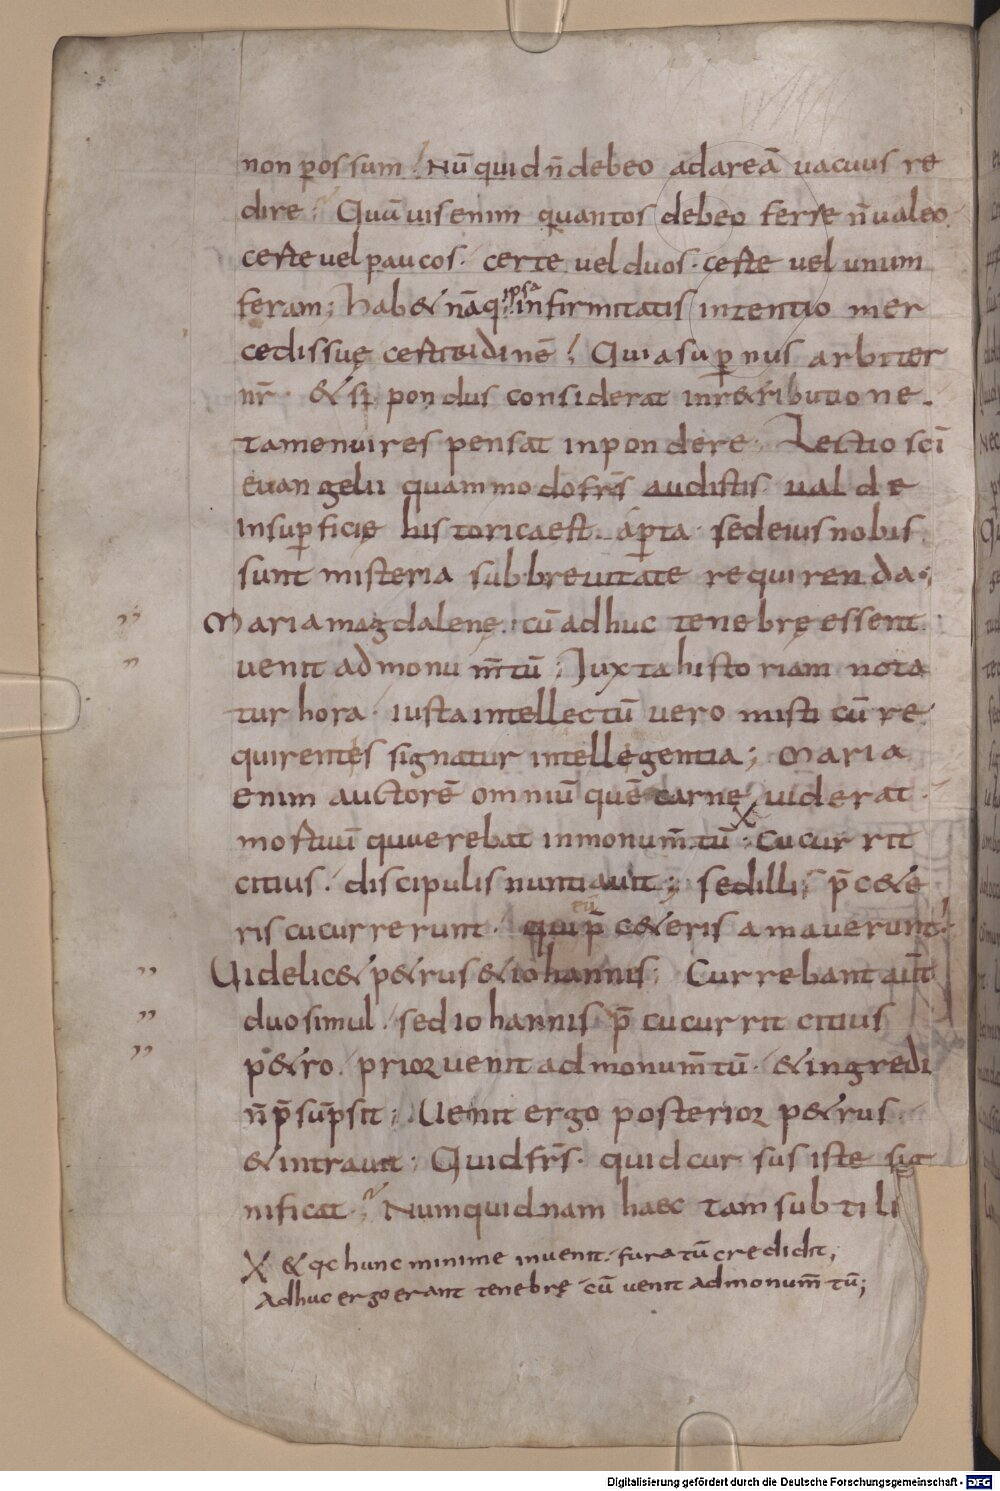 non possum; Nū quid n̄ debeo ad areā uacuus re
dire; Quāuis enim quantos debeo ferre n̄ ualeo.
certe uel paucos. certe uel duos. certe uel unum
feram; Hab& nāq; ipsa infirmitatis intentio mer
cedis suę certitudinē; Quia supnus arbiter
nr̄. &si pondus considerat in r&ributione.
tamen uires pensat in pondere; Lectio sc̄i
euangelii quam modo fr̄s audistis ualde
in supficie historica est apta. sed eius nobis
sunt misteria sub breuitate requirenda;
” Maria magdalene. cū adhuc tenebrę essent.
” uenit ad monum̄tū; Iuxta historiam nota
tur hora. iusta intellectū uero misticū re
quirentes signatur intellegentia; Maria
enim auctorē omniū quē carne uiderat.
mortuū querebat in monum̄tū; X Cucurrit
citius. discipulis nuntiauit; sed illi p̄ c&e
ris cucurrerunt. qui p̄ c&eris amauerunt;
” Uidelic& p&rus & iohannis; Currebant aut̄
” duo simul. sed iohannis p̄cucurrit citius
” p&ro. prior uenit ad monum̄tū. & ingredi
n̄ p̄sūpsit; Uenit ergo posterior p&rus.
& intrauit; Quid fr̄s. quid cursus iste sig
nificat; Numquidnam haec tam subtili
X & qc hunc minime inuenit. furatū credidit;
Adhuc ergo erant tenebrę cū uenit ad monum̄tū;
Digitalisierung gefördert durch die Deutsche Forschungsgemeinschaft - DFG